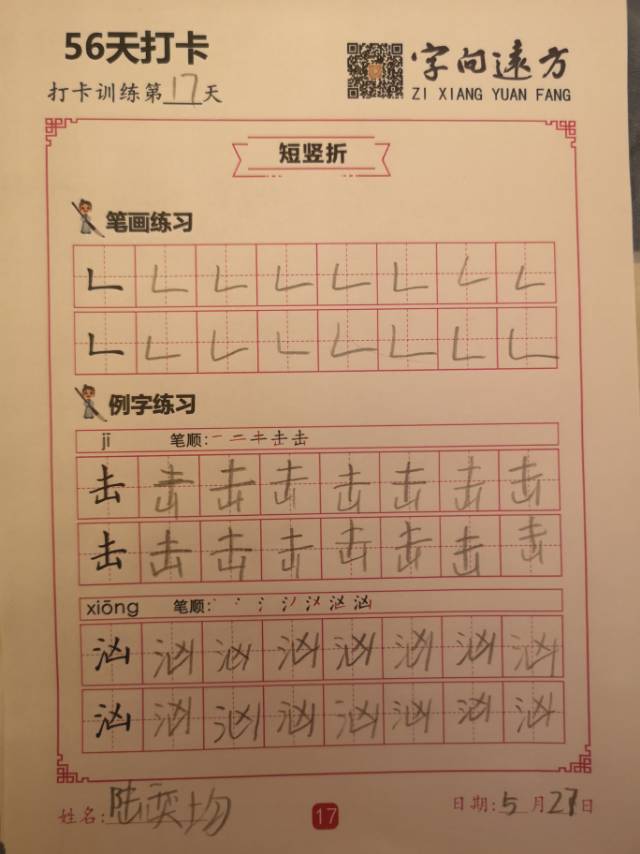 56天打卡
字向远方
打卡训练第17天
ZI XIANG YUAN FANG
短竖折
笔画练习
𠃊 𠃊 𠃊 𠃊 𠃊 𠃊 𠃊 𠃊
𠃊 𠃊 𠃊 𠃊 𠃊 𠃊 𠃊 𠃊
例字练习
jī 笔顺:
击 击 击 击 击 击 击 击
击 击 击 击 击 击 击 击
xiōng 笔顺:
汹 汹 汹 汹 汹 汹 汹 汹
汹 汹 汹 汹 汹 汹 汹 汹
姓名:陆奕均
17
日期:5月27日